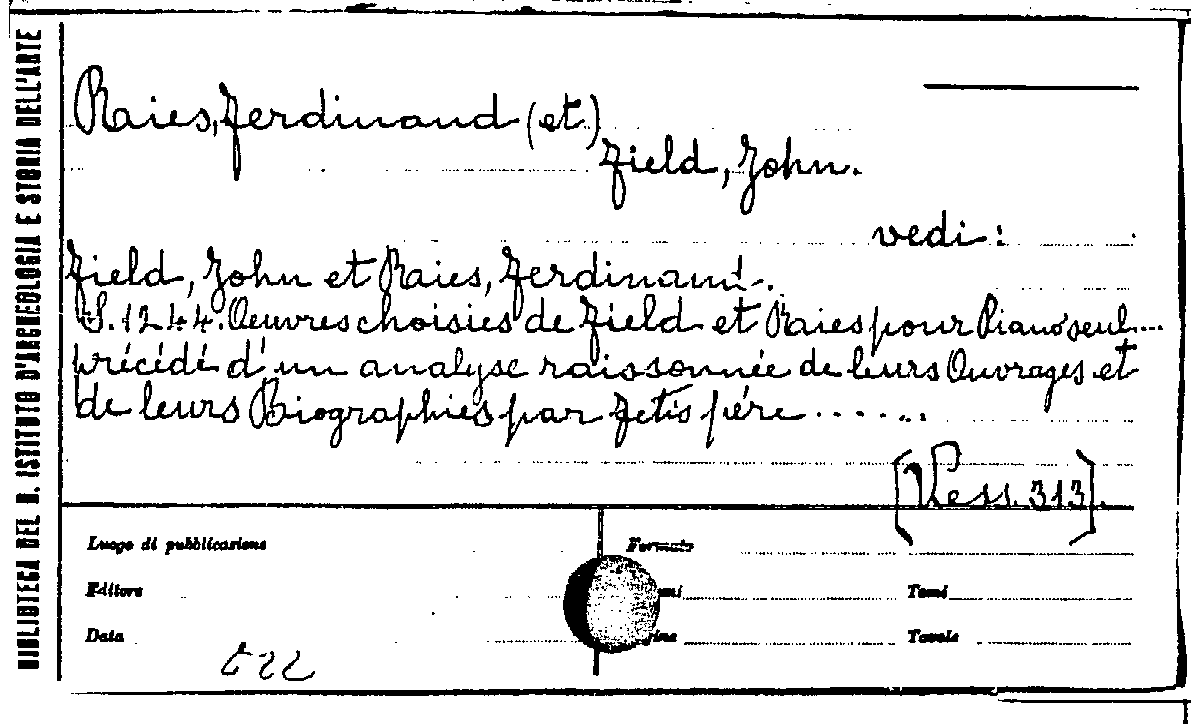 BIBLIOTECA DEL R. ISTITUTO D'ARCHEOLOGIA E STORIA DELL'ARTE
Raies, Ferdinand (et)
Field, John.
vedi:
Field, John et Raies, Ferdinand.
S. 1244. Oeuvres choisies de Field et Raies pour Piano seul...
précédé d'un analyse raissonnée de leurs Ouvrages et
de leurs Biographies par Fetis pére .......
[Vess. 313].
Luogo di pubblicazione
Formato
Editore
Tomi
Data
Tavole